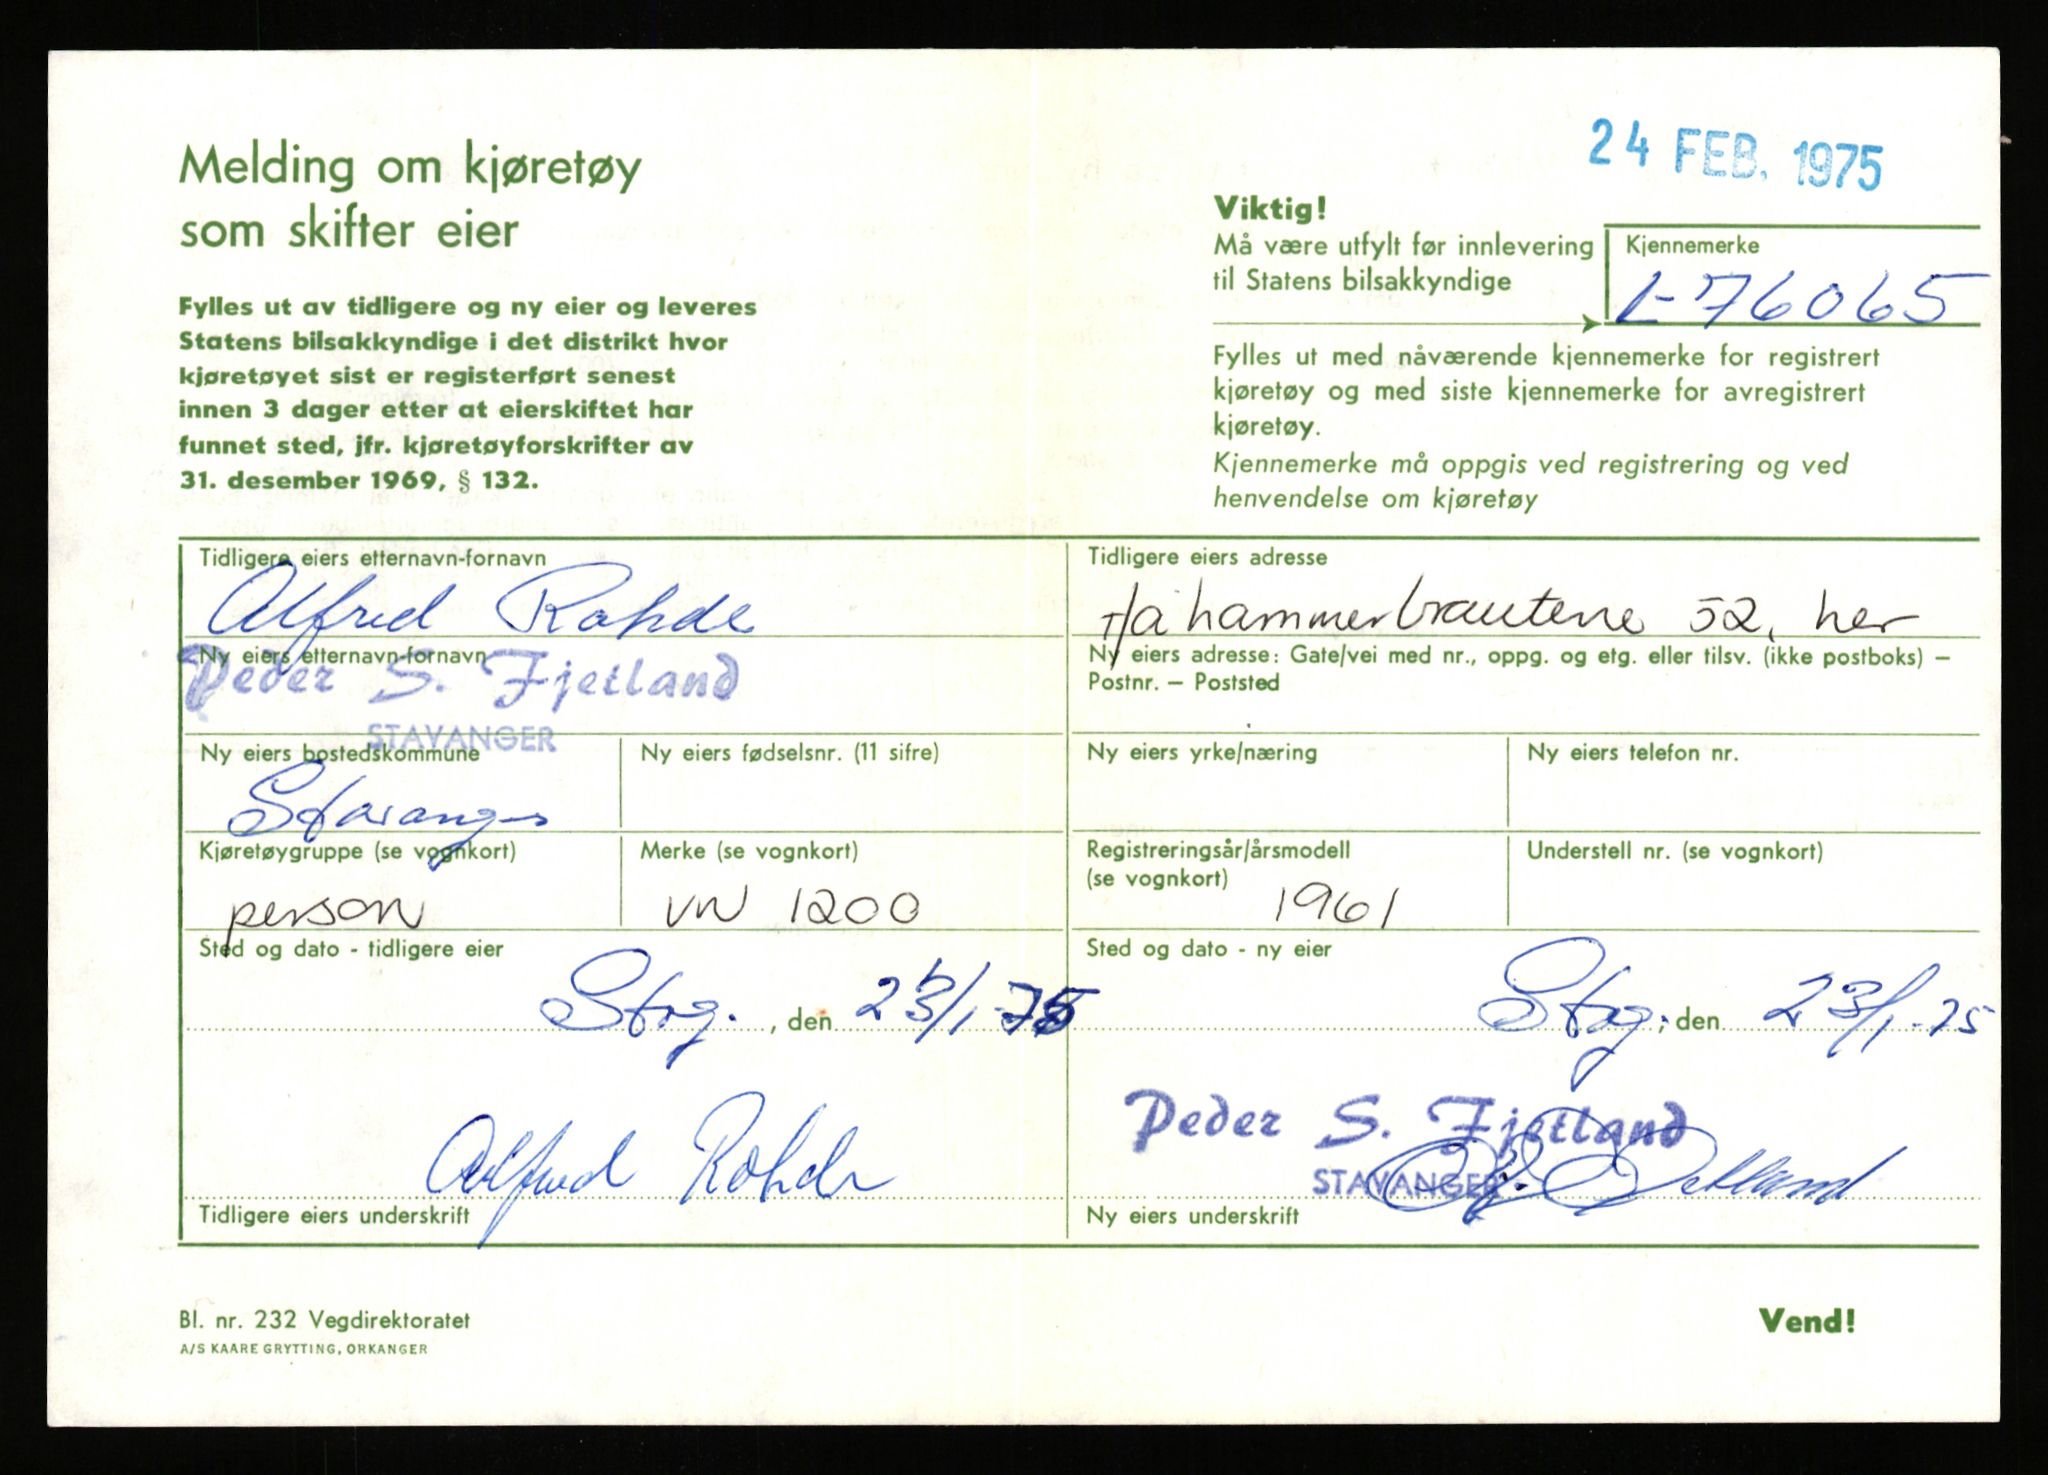 24 FEB. 1975
Melding om kjøretøy
som skifter eier
Viktig!
Må være utfylt før innlevering
til Statens bilsakkyndige
Kjennemerke
L-76065
Fylles ut av tidligere og ny eier og leveres
Statens bilsakkyndige i det distrikt hvor
kjøretøyet sist er registerført senest
innen 3 dager etter at eierskiftet har
funnet sted, jfr. kjøretøyforskrifter av
31. desember 1969, § 132.
Fylles ut med nåværende kjennemerke for registrert
kjøretøy og med siste kjennemerke for avregistrert
kjøretøy.
Kjennemerke må oppgis ved registrering og ved
henvendelse om kjøretøy
Tidligere eiers etternavn-fornavn
Alfred Rohde
Tidligere eiers adresse
52, her
Ny eiers etternavn-fornavn
Peder S. Fjetland
STAVANGER
Ny eiers adresse: Gate/vei med nr., oppg. og etg. eller tilsv. (ikke postboks) –
Postnr. – Poststed
Ny eiers bostedskommune
Stavanger
Ny eiers fødselsnr. (11 sifre)
Ny eiers yrke/næring
Ny eiers telefon nr.
Kjøretøygruppe (se vognkort)
person
Merke (se vognkort)
VW 1200
Registreringsår/årsmodell
(se vognkort)
1961
Understell nr. (se vognkort)
Sted og dato - tidligere eier
Stvg., den 23/1-75
Sted og dato - ny eier
Stvg, den 23/1-75
Alfred Rohde
Tidligere eiers underskrift
Peder S. Fjetland
STAVANGER
Ny eiers underskrift
Bl. nr. 232 Vegdirektoratet
A/S KAARE GRYTTING, ORKANGER
Vend!